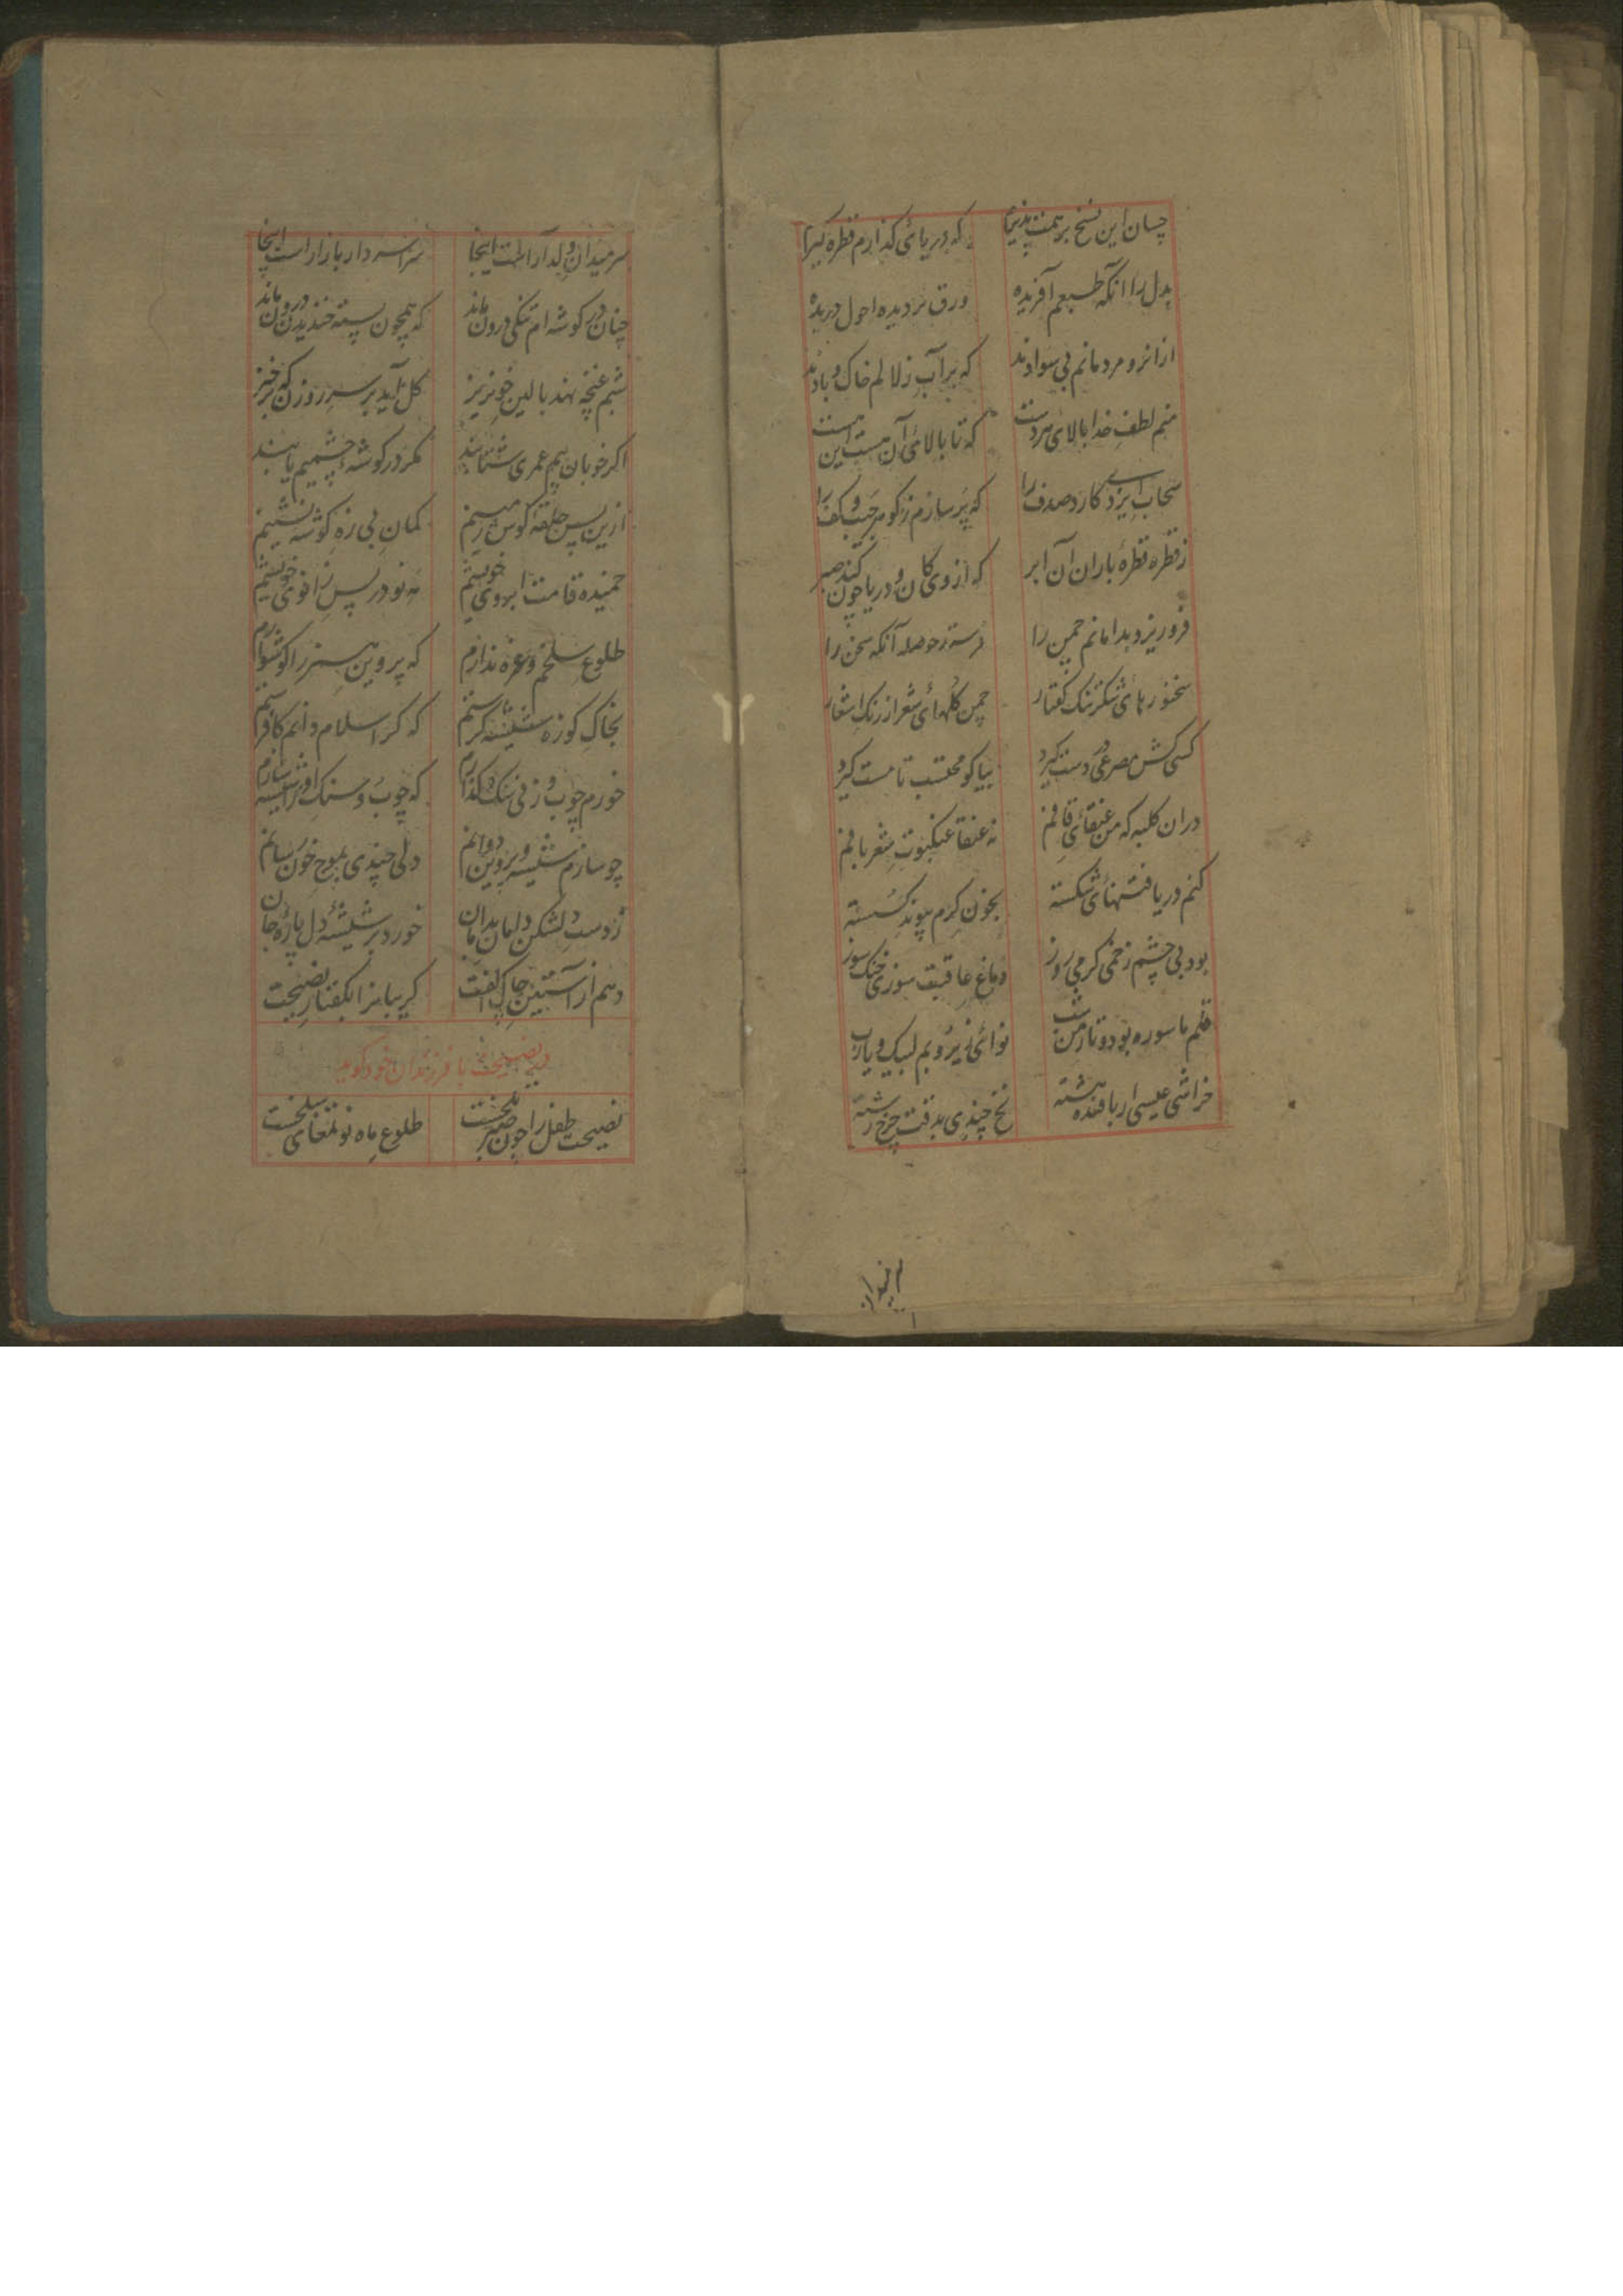 چسان این نسخ بر همت پذیرم که دریائی گذارم قطره گیرم
بدل را آنکه طبعم آفریده ورق بر دیده احول دریده
ازانرو مردمانم بی سوادند که بر آب زلالم خاک و بادند
منم لطف خدا بالای هر دست که تا بالائی آن هست این هست
سحاب ایزدی کارد صدف را که پر سازم ز گوهر جیب و کف را
ز قطره قطره باران آن ابر که از وی کان و دریا چون کند صبر
فرو ریزد بدامانم چمن را فرستد حوصله آنکه سخن را
سخنورهای شکر تنگ گفتار چمن گلهای شعر از رنگ اشعار
کسی کش مصرعی در دست گیرد بیا کو محتسب تا مست گیرد
دران کلبه که من عنقای قافم نه عنقا عنکبوت شعر بافم
کنم دریافتنهای شکسته بخون گرم پیوند گسسته
بود بی چشم زخمی گرمی روز دماغ عاقبت سوزی خنک سوز
قلم ماسوره بود و تار من شب نوائی زیر و بم لبیک و یارب
خراشی عیسی ار بافنده هشته نخ چندی بدقت چرخ رشته
سر میدان و دلدار است اینجا سراسر دار بازار است اینجا
چنان در گوشه ام تنگی درون ماند که همچون پسته خندیدن درون ماند
شبم غنچه نهد بالین خونریز گل آید بر سر روزن که برخیز
اگر خوبان بهم عمری نشینند مگر در گوشه چشمیم یابند
ازین پس حلقه گوش زمینم کمان بی زه گوشه نشینم
خمیده قامت ابروی خویشم مه نو در پس زانوی خویشم
طلوع سلخم و غره ندارم که پروین هنر را گوشوارم
بخاک کوزه شیشه گرستم که گر اسلام دانم کافرستم
خورم چوب و زنی سنگ و گذارم که چوب و سنگ او را شیشه سازم
چو سازم شیشه و پروین دوانم دلی چندی بموج خون رسانم
ز دست دلشکن دلمان بدامان خورد بر شیشه دل پاره جان
دهم از آستین چاک الفت گریبانرا بگفتار نصیحت
در نصیحت با فرزندان خود گوید
نصیحت طفل را چون صبر تلخست طلوع ماه نو تمغای سلخست